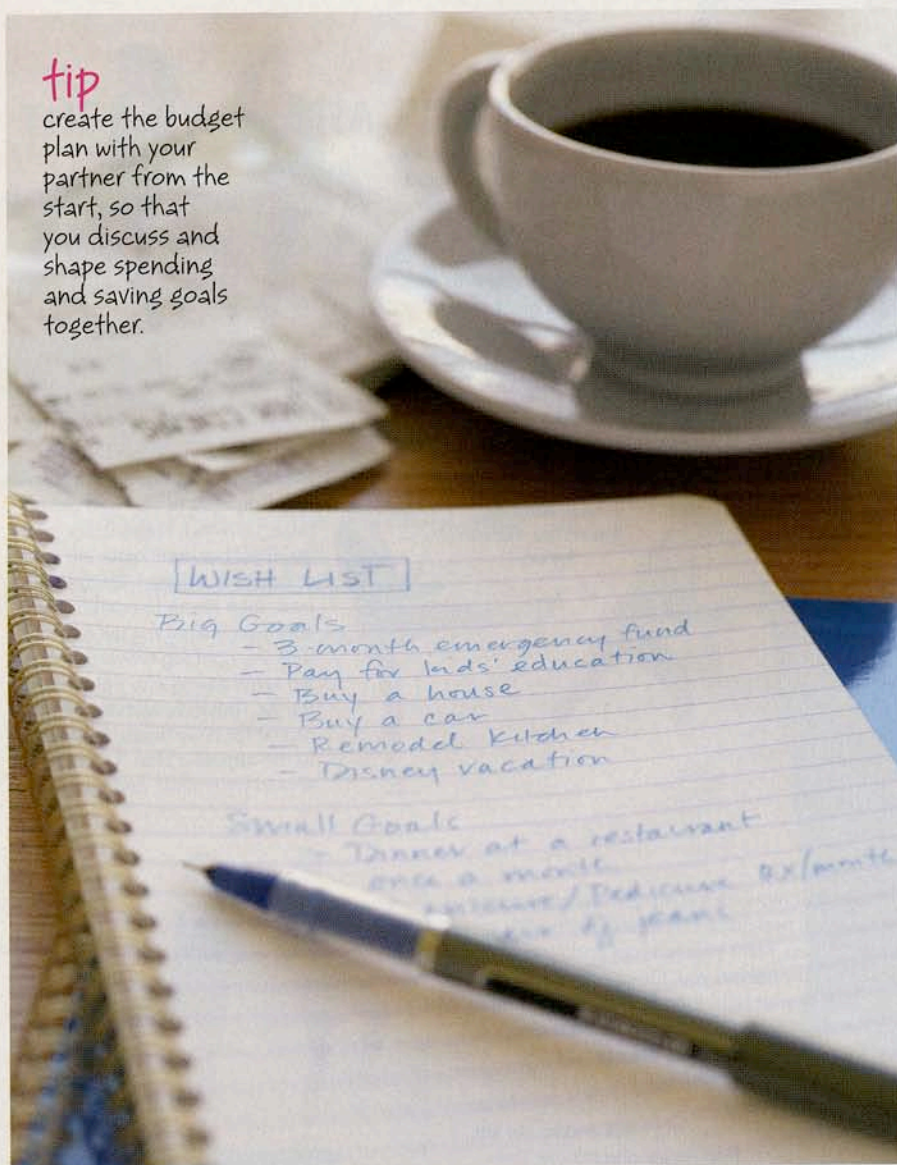 tip
create the budget
plan with your
partner from the
start, so that
you discuss and
shape spending
and saving goals
together.
WISH LIST
Big Goals
- 3-month emergency fund
- Pay for kids' education
- Buy a house
- Buy a car
- Remodel kitchen
- Disney vacation
Small Goals
- Dinner at a restaurant
once a month
/Pedicure /month
of jeans